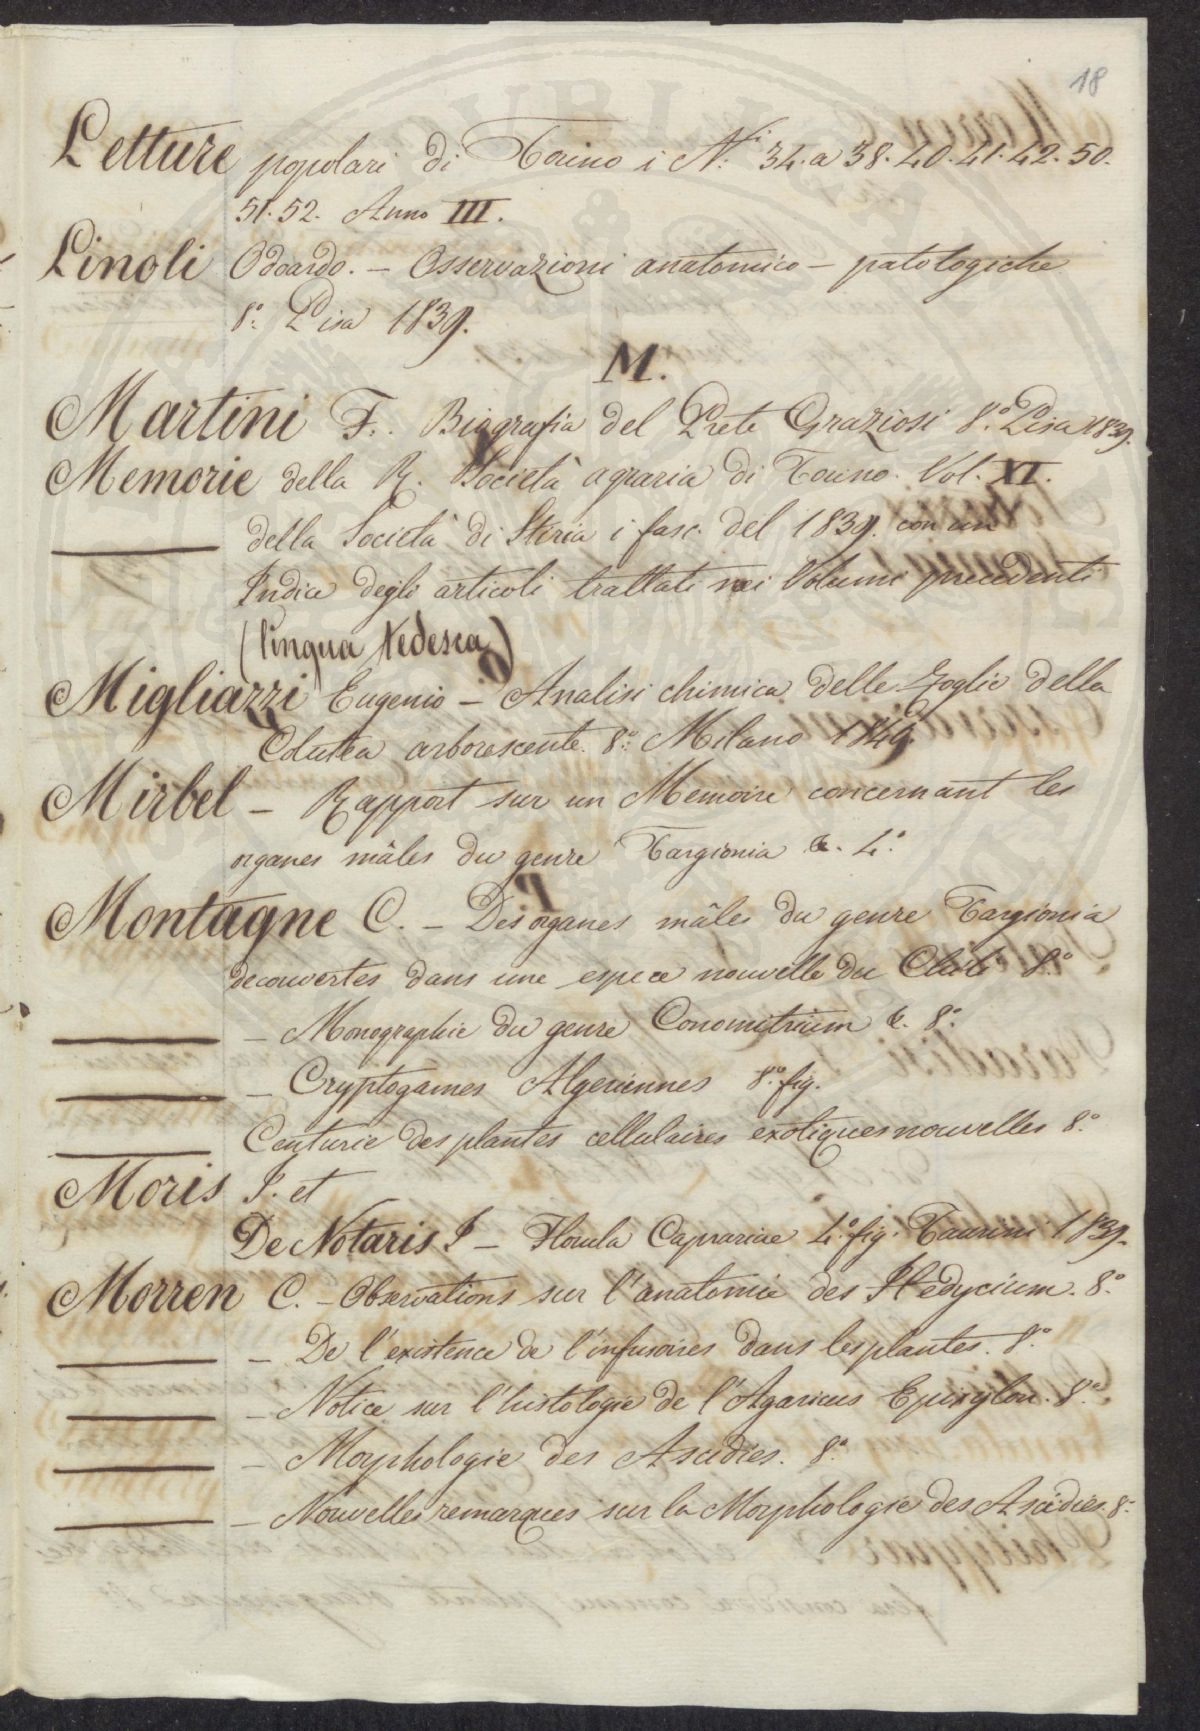 18
Letture popolari di Torino i N.i 34. a 38. 40. 41. 42. 50.
51. 52. Anno III.
Linoli Odoardo. — Osservazioni anatomico — patologiche
8.o Pisa 1839.
M.
Martini F. Biografia del Prete Graziosi 8.o Pisa 1839.
Memorie della R. Società agraria di Torino. Vol. XI.
della Società di Stiria i fasc. del 1839. con un
Indice degli articoli trattati nei Volumi precedenti
(lingua tedesca)
Migliazzi Eugenio — Analisi chimica delle Foglie della
Colutea arborescente. 8.o Milano 1840.
Mirbel — Rapport sur un Memoire concernant les
organes mâles du genre Targionia &. 4.o
Montagne C. — Des organes mâles du genre Targionia
decouvertes dans une espece nouvelle du Chili 8.o
— Monographie du genre Conomitrium &. 8.o
— Cryptogames Algeriennes 8.o fig.
Centurie des plantes cellulaires exotiques nouvelles 8.o
Moris I. et
De Notaris I — Florula Caprariae 4.o fig. Taurini 1839.
Morren C. — Observations sur l'anatomie des Hedycium. 8.o
— De l'existence de l'infusoires dans les plantes. 8.o
— Notice sur l'histologie de l'Agaricus Epixylon. 8.o
— Morphologie des Ascidies. 8.o
— Nouvelles remarques sur la Morphologie des Ascidies. 8.o